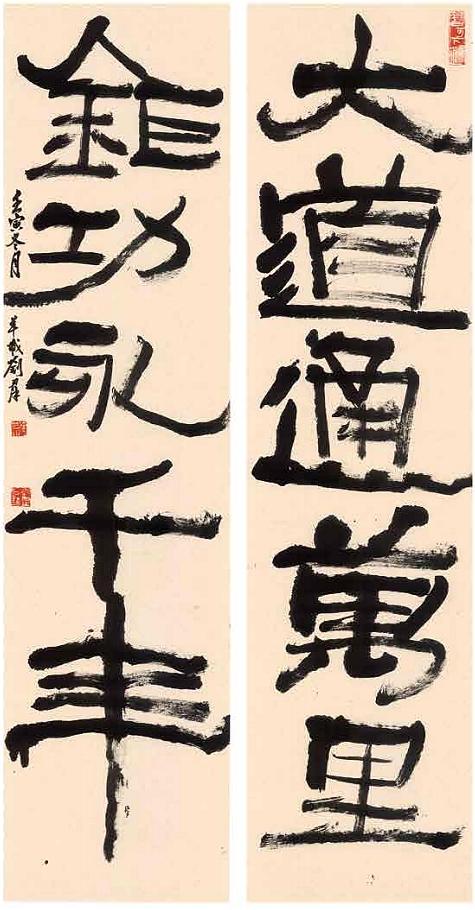 大道通萬里
鉅功永千年
壬寅冬月 羊城劉羣